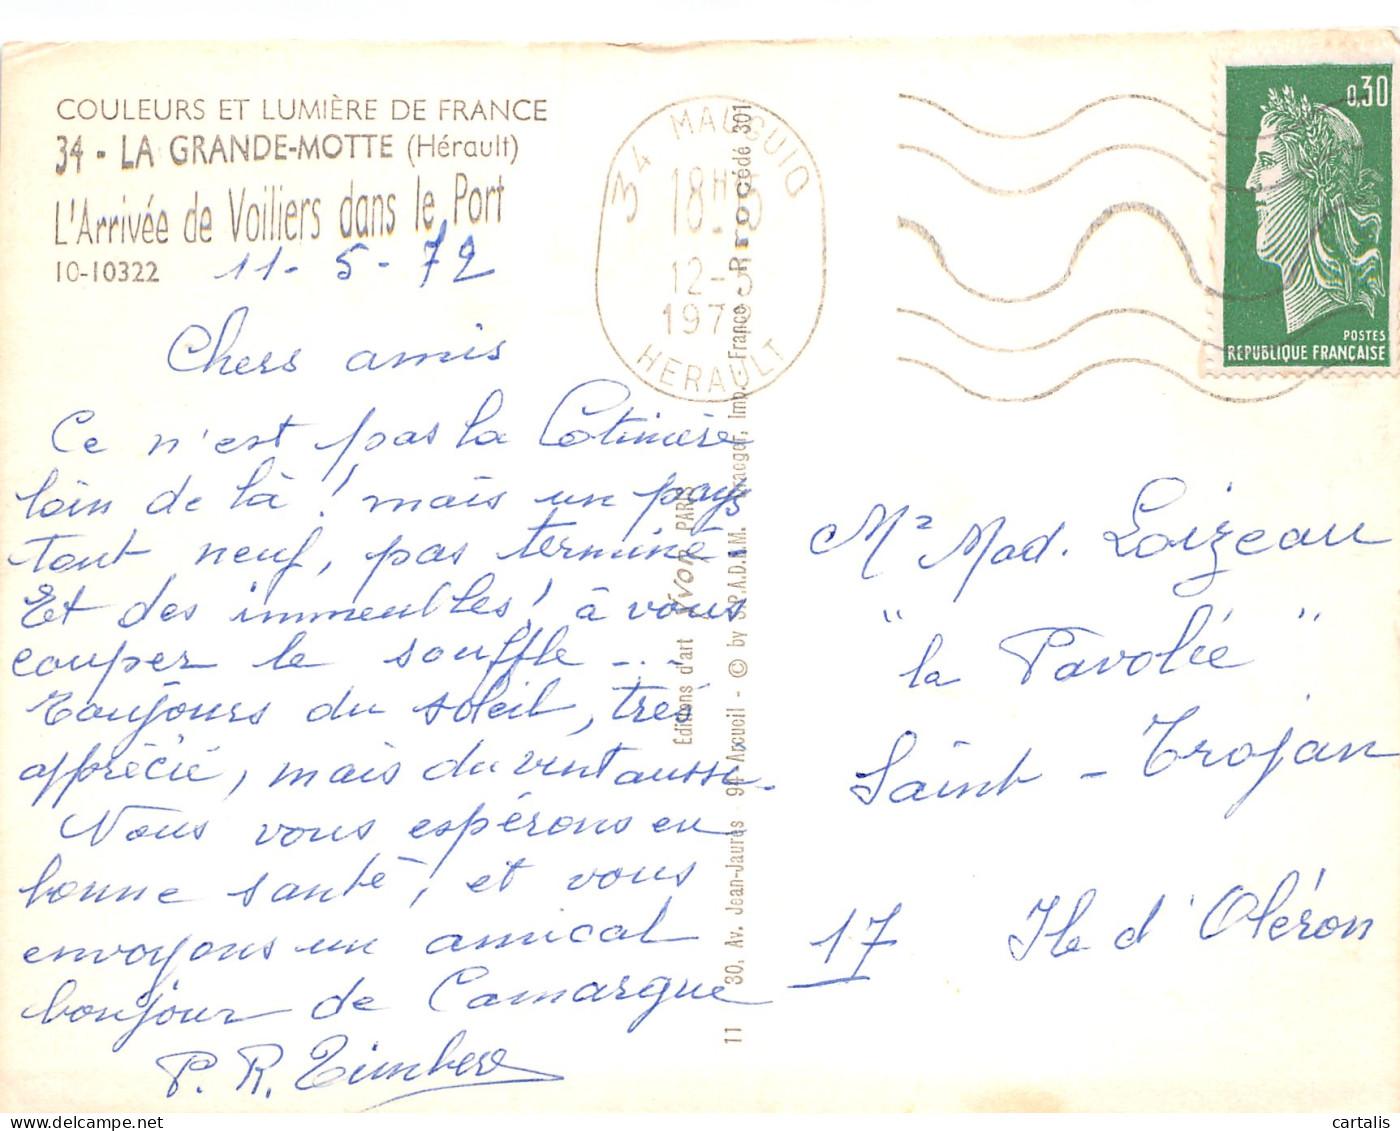 COULEURS ET LUMIÈRE DE FRANCE
34 - LA GRANDE-MOTTE (Hérault)
L'Arrivée de Voiliers dans le Port
10-10322
11-5-72
Chers amis
Ce n'est pas la Cotinière
loin de là! mais un pays
tout neuf, pas terminé.
Et des immeubles! à vous
couper le souffle ...
Toujours du soleil, très
apprécié, mais du vent aussi.
Nous vous espérons en
bonne santé, et vous
envoyons un amical
bonjour de Camargue
P. R.
34 MAUGUIO
18H
12-5
197
HERAULT
0,30
POSTES
REPUBLIQUE FRANÇAISE
Editions d'art Yvon PARIS
11 30, Av. Jean-Jaurès - 94-Arcueil - © by S.P.A.D.E.M. Imp. France - Procédé 301
Mr Mad. Loizeau
"la Pavolée"
Saint-Trojan
17 Ile d'Oléron
cartalis.com